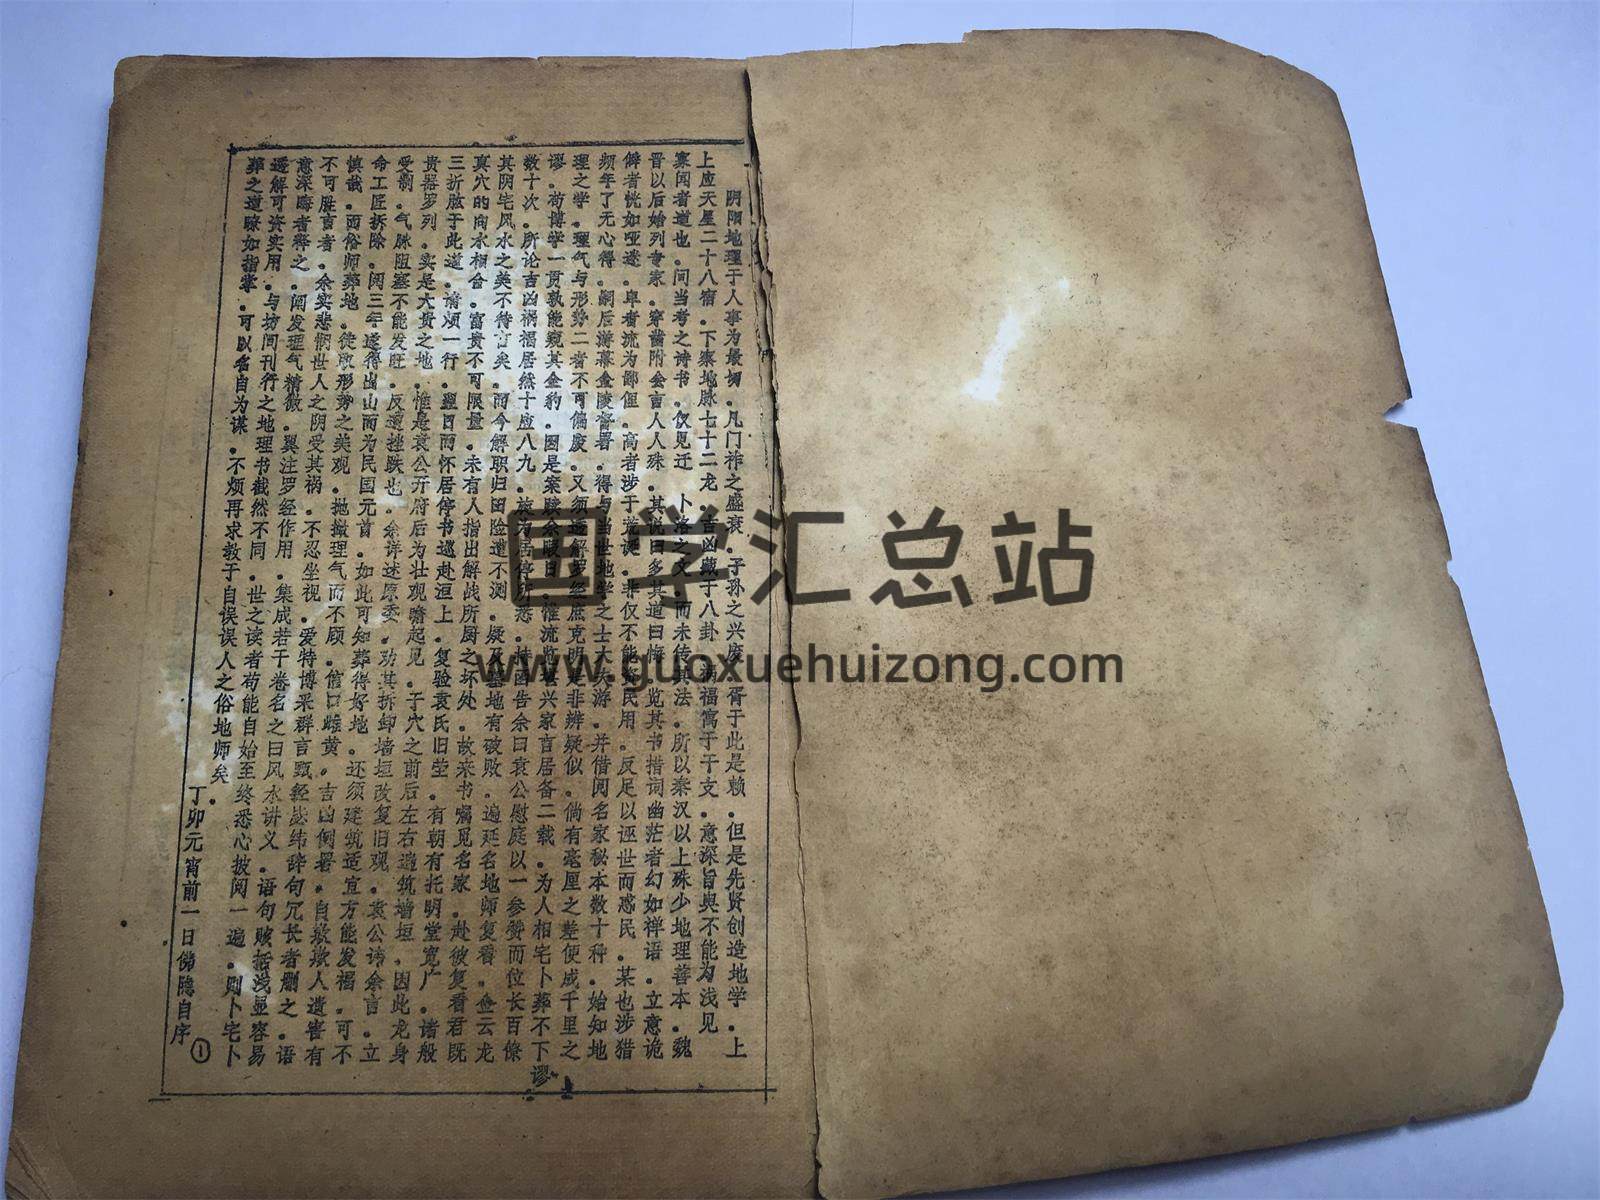 阴阳地理于人事为最切.凡门祚之盛衰.子孙之兴废.胥于此是赖.但是先贤创造地学.上
上应天星二十八宿.下察地脉七十二龙.吉凶藏于八卦.祸福寓于干支.意深旨奥不能为浅见
寡闻者道也.间当考之诗书.仅见迁 卜洛之文.而未传其法.所以秦汉以上殊少地理善本.魏
晋以后始列专家.穿凿附会言人人殊.其说日多其道日晦.览其书措词幽茫者幻如禅语.立意诡
僻者恍如哑谜.卑者流为鄙俚.高者涉于荒诞.非仅不能 民用.反足以诬世而惑民.某也涉猎
频年了无心得.嗣后游幕金陵督署.得与当世地学之士大夫游.并借阅名家秘本数十种.始知地
理之学.理气与形势二者不可偏废.又须透解罗经庶克明是非辨疑似.倘有毫厘之差便成千里之
谬.苟博学一贯孰能窥其全豹.因是案牍余暇日惟流览堪兴家言居备二载.为人相宅卜葬不下
数十次.所论吉凶祸福居然十应八九.旋为居停所悉.持函告余曰袁公慰庭以一参赞而位长百僚
其阴宅风水之美不待言矣.而今解职归田险遭不测.疑及墓地有破败.遍延名地师复看.佥云龙
真穴的向水相合.富贵不可限量.未有人指出解战所厨之坏处.故来书嘱觅名家.赴彼复看君既
三折肱于此道.请烦一行.翌日而怀居停书遄赴洹上.复验袁氏旧茔.有朝有托明堂宽广.诸般
贵器罗列.实是大贵之地.惟是袁公开府后为壮观瞻起见.于穴之前后左右遍筑墙垣.因此龙身
受制.气脉阻塞不能发旺.反遭挫跌也.余详述原委.劝其拆卸墙垣改复旧观.袁公 余言.立
命工匠拆除.阅三年遂得出山而为民国元首.如此可知葬得好地.还须建筑适宜方能发福.可不
慎哉.而俗师葬地.徒取形势之美观.抛撇理气而不顾.信口雌黄.吉凶倒置.自欺欺人遗害有
不可胜言者.余实悲悯世人之阴受其祸.不忍坐视.爰特博采群言甄轻毖纬辞句冗长者删之.语
意深晦者释之.阐发理气精微.冀注罗经作用.集成若干卷名之曰风水讲义.语句赅括浅显容易
透解可资实用.与坊间刊行之地理书截然不同.世之读者苟能自始至终悉心披阅一遍.则卜宅卜
葬之道瞭如指掌.可以名自为谋.不烦再求教于自误误人之俗地师矣.
丁卯元宵前一日佛隐自序
①
谬
国学汇总站
www.guoxuehuizong.com